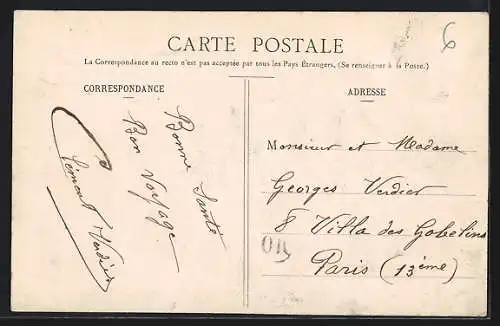 CARTE POSTALE
La Correspondance au recto n'est pas acceptée par tous les Pays Étrangers. (Se renseigner à la Poste.)
CORRESPONDANCE
Bonne Santé
Bon Voyage
Clément Verdier
ADRESSE
Monsieur et Madame
Georges Verdier
8 Villa des Gobelins
Paris (13ème)
OR
6